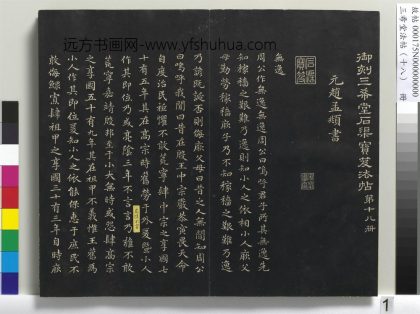 远方书画网-www.yfshuhua.com
故帖 000175N000000000
三希堂法帖(十八) 冊
御刻三希堂石渠寶笈法帖 第十八冊
元趙孟頫書
無逸
周公作無逸無逸周公曰嗚呼君子所其無逸先
知稼穡之艱難乃逸則知小人之依相小人厥父
母勤勞稼穡厥子乃不知稼穡之艱難乃逸
乃諺既誕否則侮厥父母曰昔之人無聞知周公
曰嗚呼我聞曰昔在殷王中宗嚴恭寅畏天命
自度治民祗懼不敢荒寧肆中宗之享國七
十有五年其在高宗時舊勞于外爰暨小人
作其即位乃或亮陰三年不言言乃雍不敢
荒寧嘉靖殷邦至于小大無時或怨肆高宗
之享國五十有九年其在祖甲不義惟王舊爲
小人作其即位爰知小人之依能保惠于庶民不
敢侮鰥寡肆祖甲之享國三十有三年自時厥
1